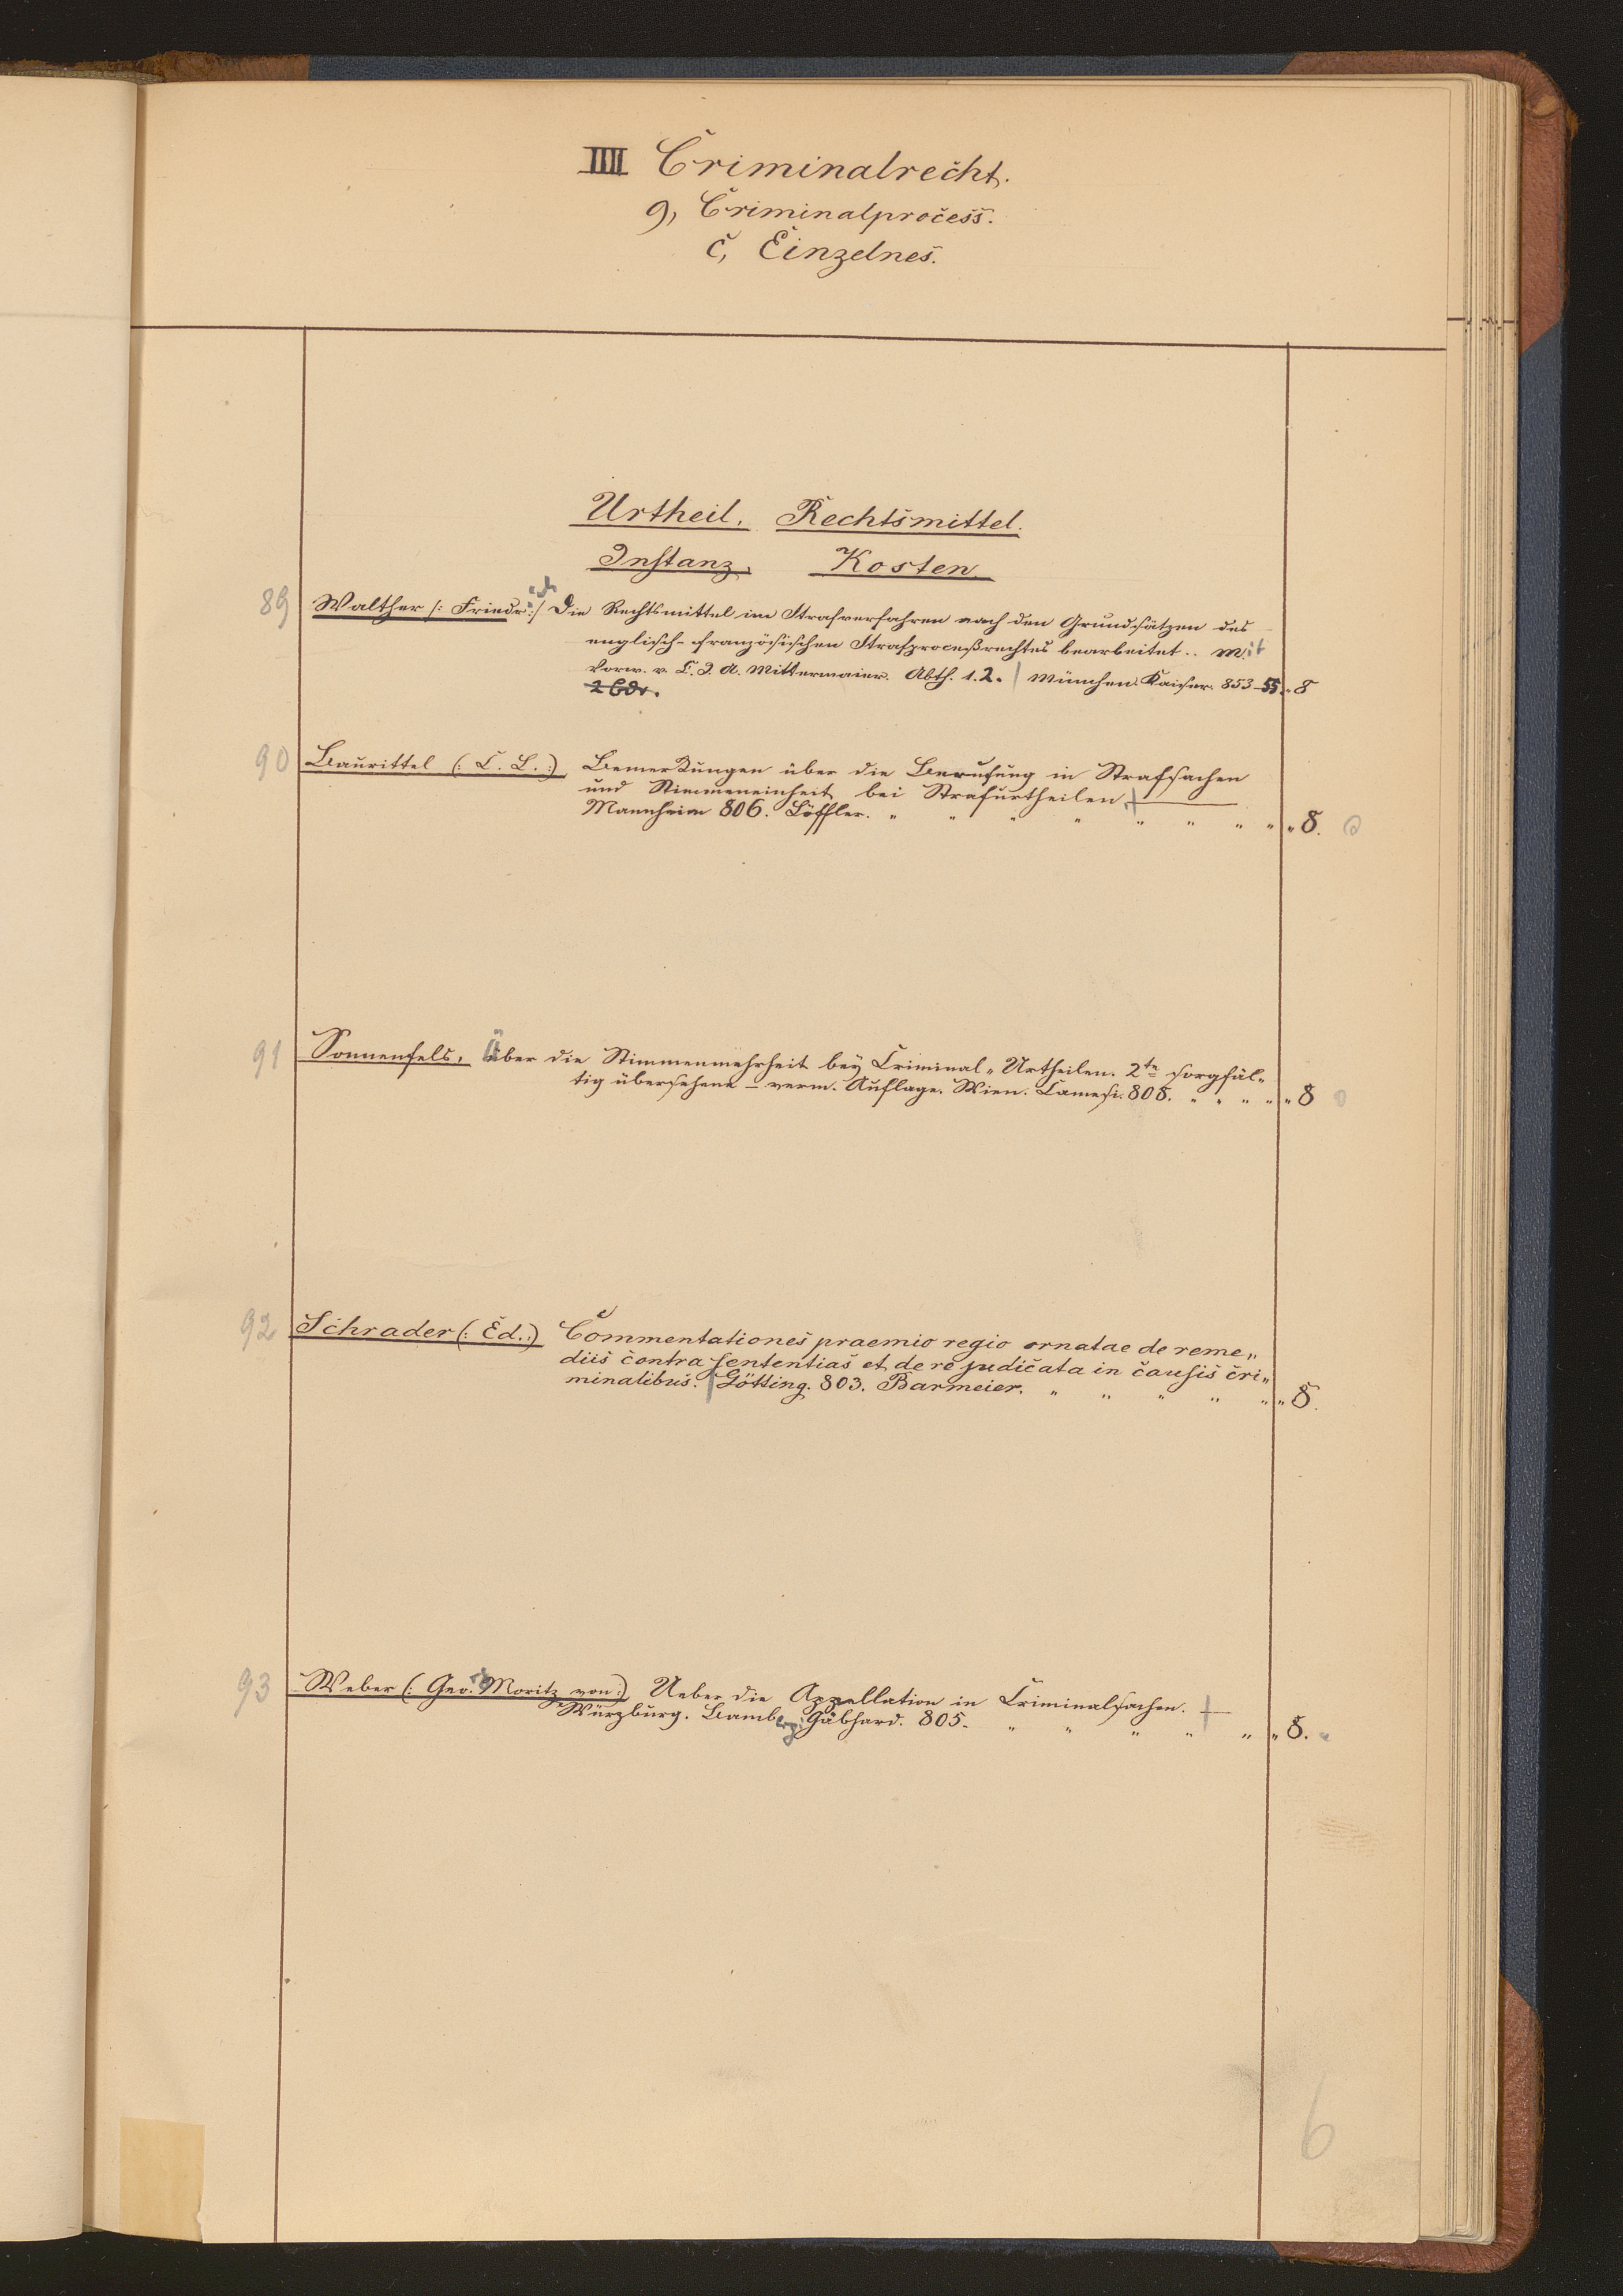 IIII Criminalrecht.
9, Criminalprocess.
c, Einzelnes.
Urtheil. Rechtsmittel.
Instanz. Kosten.
89 Walther (: Friedrich :) Die Rechtsmittel im Strafverfahren nach den Grundsätzen des
englisch-französischen Strafproceßrechtes bearbeitet.. Mit
Vorw. v. C. J. A. Mittermaier. Abth. 1.2. | München. Kaiser. 853-55. „ 8
2 Bde.
90 Baurittel (: C. L. :) Bemerkungen über die Berufung in Strafsachen
und Stimmeneinheit bei Strafurtheilen.
Mannheim 806. Löffler. „ „ „ „ „ „ „ „ „ 8.
91 Sonnenfels, Über die Stimmenmehrheit bey Criminal-Urtheilen. 2te sorgfäl-
tig übersehene – verm. Auflage. Wien. Camesi. 808. „ „ „ „ „ 8
92 Schrader (: Ed. :) Commentationes praemio regio ornatae de reme-
diis contra sententias et de re judicata in causis cri-
minalibus. | Götting. 803. Barmeier. „ „ „ „ „ „ 8.
93 Weber (: Geo. Moritz von :) Ueber die Appellation in Criminalsachen.
Würzburg. Bamberg. Göbhard. 805. „ „ „ „ „ „ 8.
6